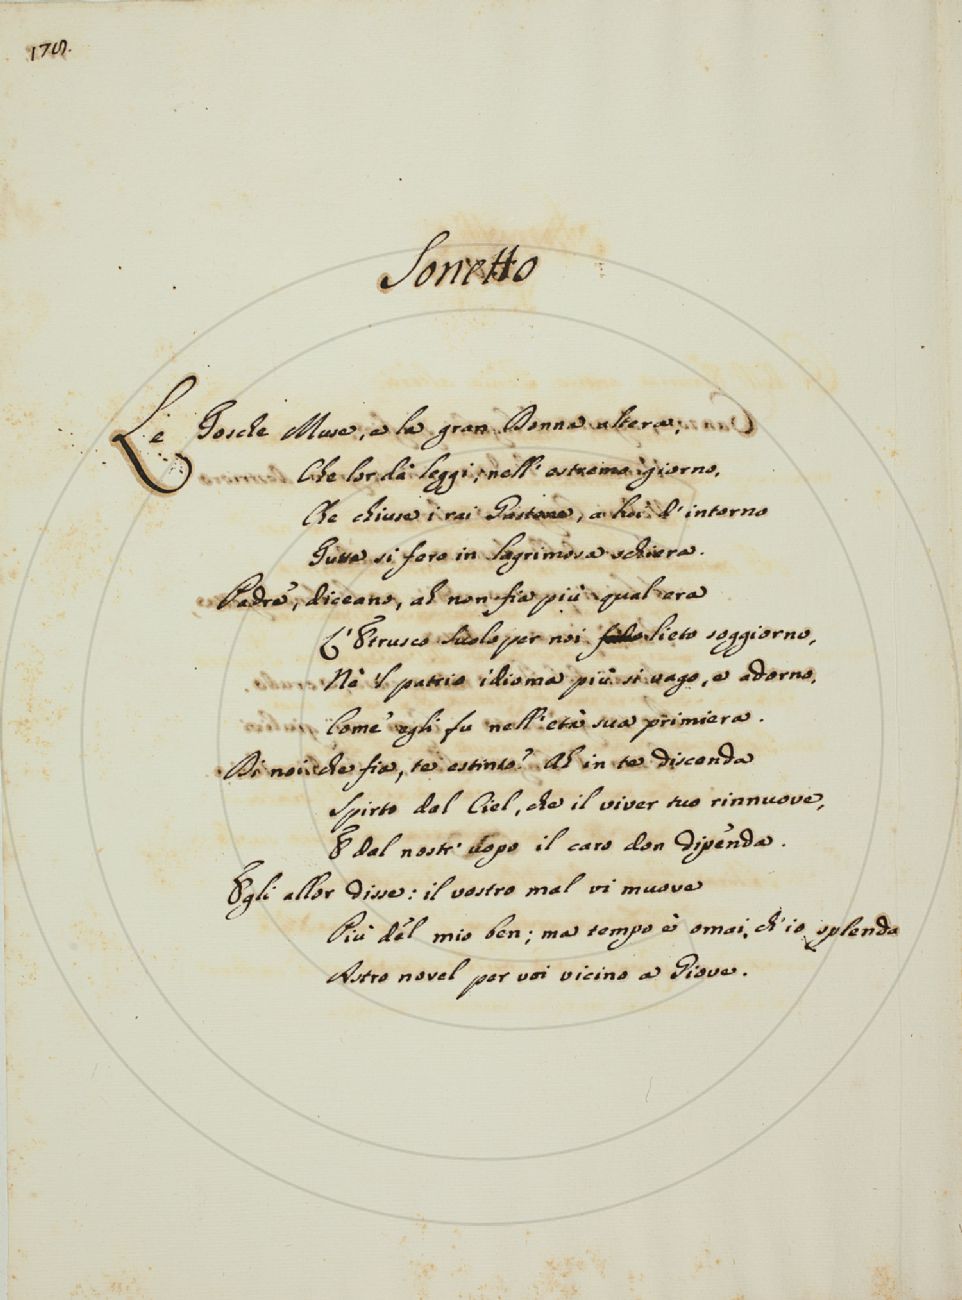 Sonetto
Le Tosche Muse, e la gran Donna altera,
Che lor dà leggi; nell' estremo giorno,
Che chiuse i rai Gastone, a lui d'intorno
Tutte si fero in lagrimosa schiera.
Padre, diceano, ah non fia più qual era
L'Etrusco suolo per noi lieto soggiorno,
Nè 'l patrio idioma più sì vago, e adorno,
Come egli fu nell' età sua primiera.
Di noi che fia, te estinto? Ah in te discenda
Spirto dal Ciel, che il viver tuo rinnuove,
E dal nostr' uopo il caro don dipenda.
Egli allor disse: il vostro mal vi muove
Più del mio ben; ma tempo è omai, ch' io splenda
Astro novel per voi vicino a Giove.